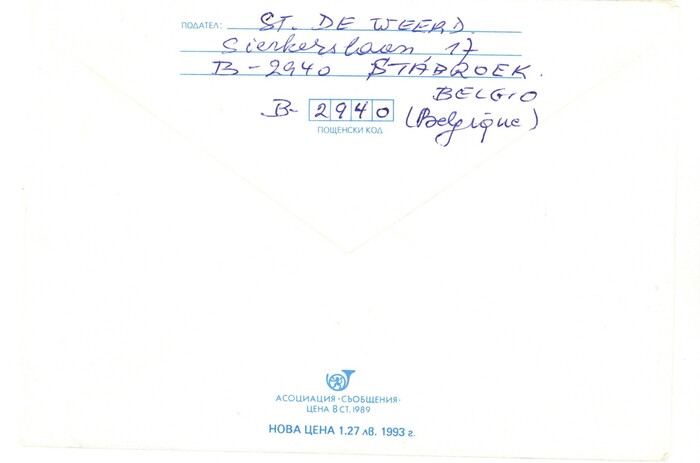 ПОДАТЕЛ: ST. DE WEERD.
Sierkerslaan 17
B-2940 STABROEK.
BELGIO
B- 2940 (Belgique)
ПОЩЕНСКИ КОД
АСОЦИАЦИЯ •СЪОБЩЕНИЯ•
ЦЕНА 8 СТ. 1989
НОВА ЦЕНА 1.27 лв. 1993 г.